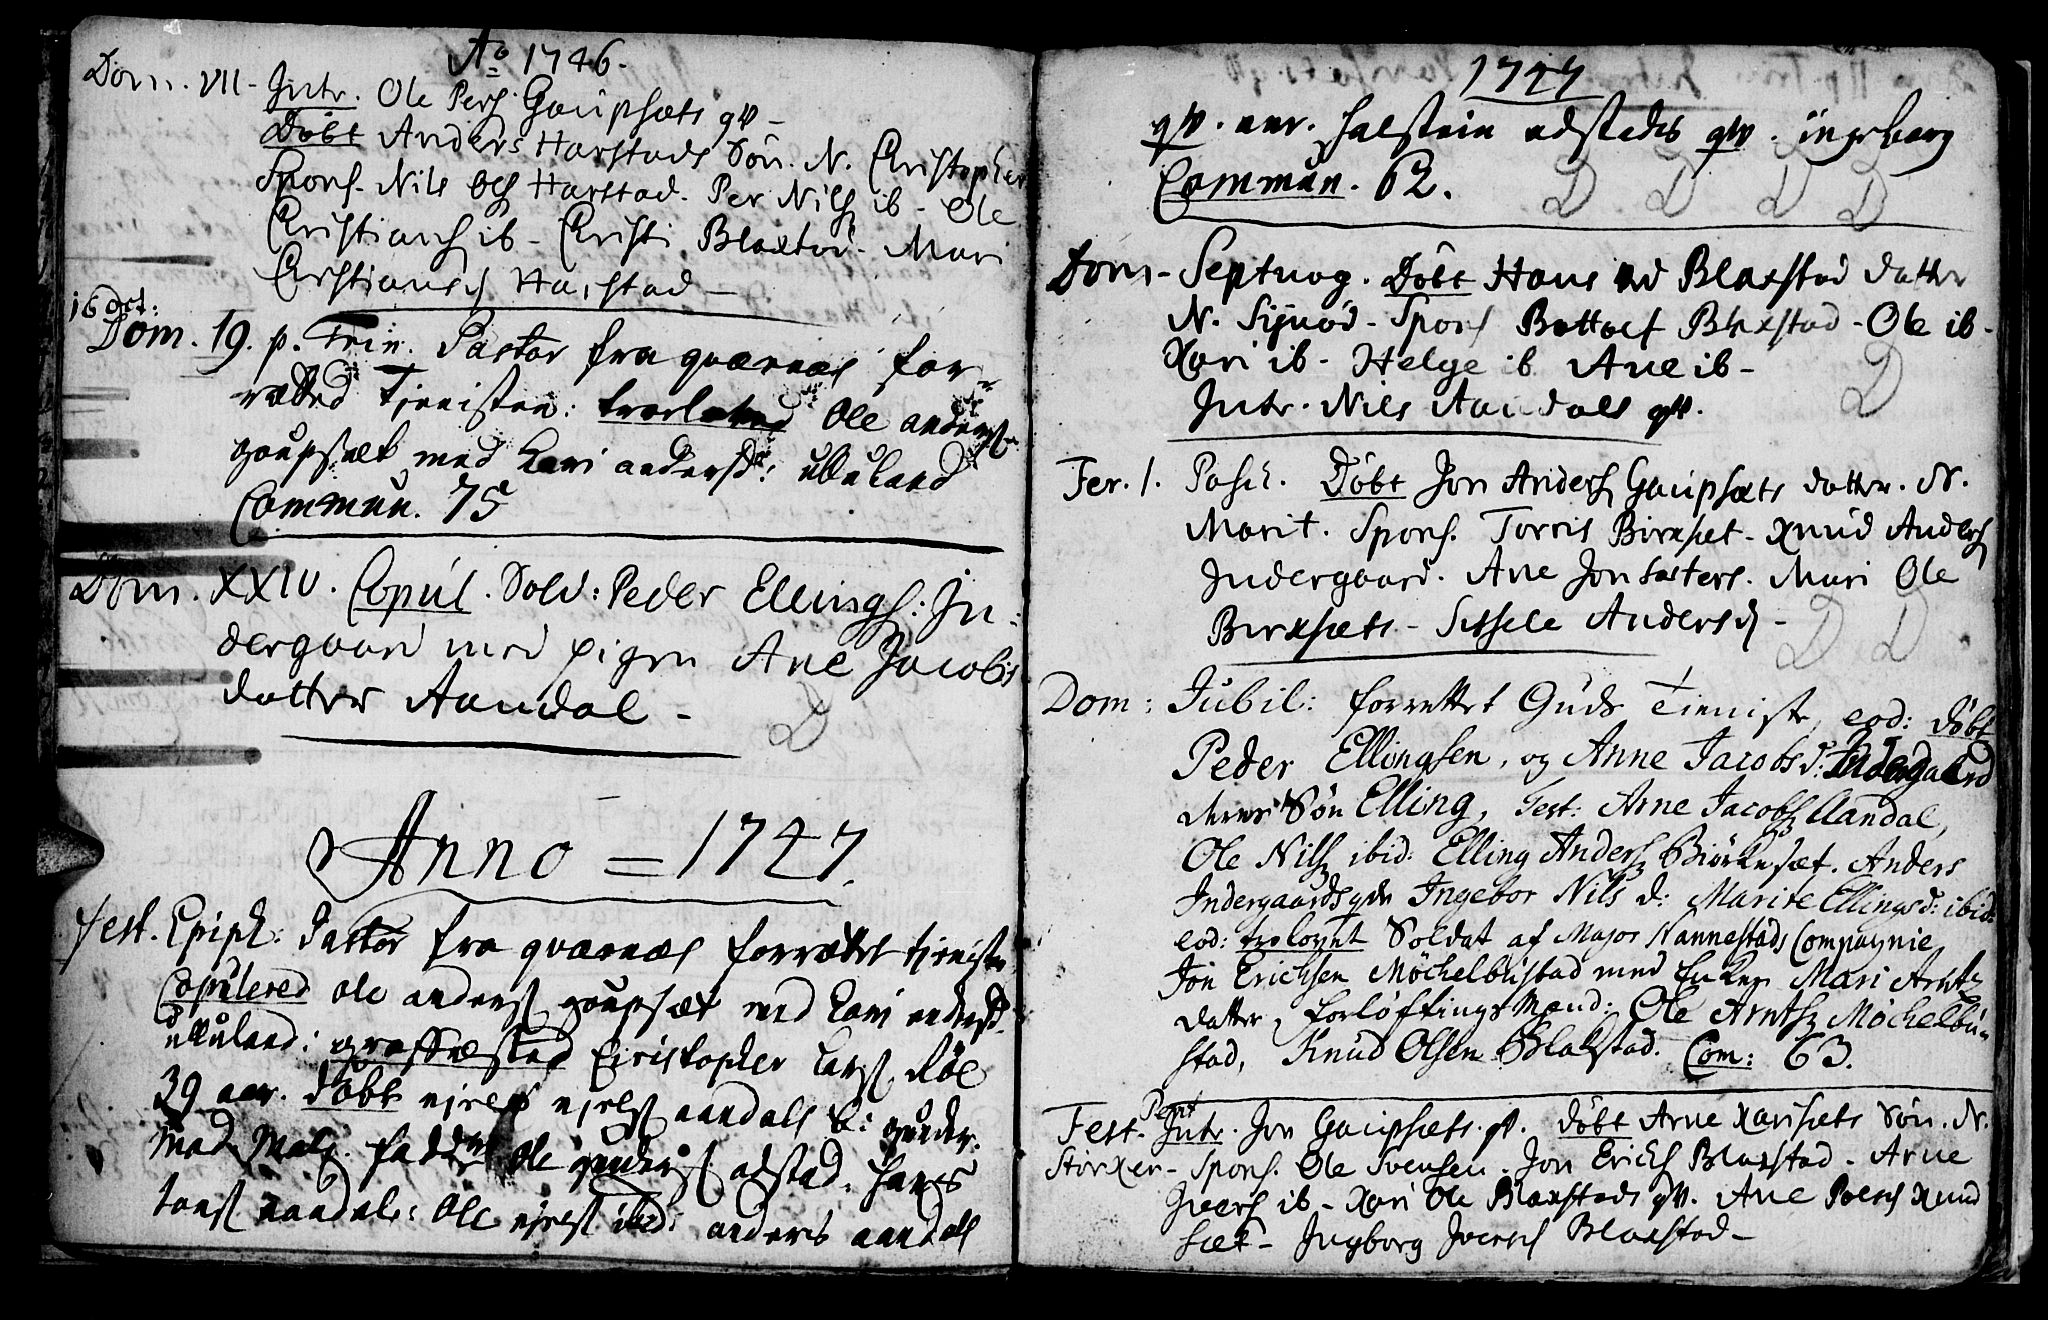 Ao 1746.
Dom. VII. Intr. Ole Pers. Gaupsæts qv.
Döbt Anders Harstads Sön. N. Christopher
Spons. Nils Ols Harstad. Per Nils ib. Ole
Christians ib. Christi Blaxtad. Mari
Christiansd Harstad
16 Oct:
Dom. 19. p. Trin. Pastor fra qværnæs for-
rætted Tjenisten: trorloved Ole anders
goupsæt med Kari andersd: ukuland
Commun. 75
Dom. XXIV. Copul. Sold: Peder Ellings: In:
dergaard med pigen Ane Jacobs
datter Aandal D
Anno = 1747.
Fest. Epiph: Pastor fra qværnæs forrættet tjenisten
Copulered ole anders goupsæt med Kari andersd
ukuland: graffæsted Christopher Lars Röe
39 aar. döbt njels njels aandals b: gunder.
Mad. Fadd: Ole gunders adstad. Hans
tons aandals: Ole njels ibd: anders aandals
1747
qv. Halstein adstads qv. ingeborg
Commun. 62. D D D D
Dom. Septuag. Döbt Hans Blaxstad datter
N. Synöd. Spons Bottolf Blaxstad. Ole ib.
Kari ib. Helge ib Ane ib.
Intr. Nils Aandals qv. D
Fer. 1. Pasch. Döbt Jon Anders Gaupsæts datter. N.
Marit. Spons. Torris Birkset. Knud Anders
Indergaard. Ane Jonsæters. Mari Ole
Birksæts. Sissele Andersd. D D
Dom: Jubil: forrettet Guds Tieniste, eod: döbt
Peder Ellingsen, og Anne Jacobs d: Indergaard
deres Sön Elling, Test: Arne Jacobs Aandal,
Ole Nils ibid: Elling Anders Biörkesæt. Anders
Indergaards qde Ingebor Nils d: Marite Ellings d: ibid:
eod: trolovet Soldat af Major Nannestads Compagnie
Jon Erichsen Möchelbustad med Enken Mari Arnts
datter, Forlöffnings Mænd: Ole Arnts Möchelbu-
stad, Knud Olsen Blakstad. Com: 63.
Fest. Pent Intr. Jon Gaupsæts qv. döbt Arne Karisæts Sön. N.
Störker. Spons. Ole Svensen. Jon Erichs Blaxstad. Arne
Ivers ib. Kari Ole Blaxstads qv. Ane Poels Knud
sæt. Ingborg Iversd Blaxstad.